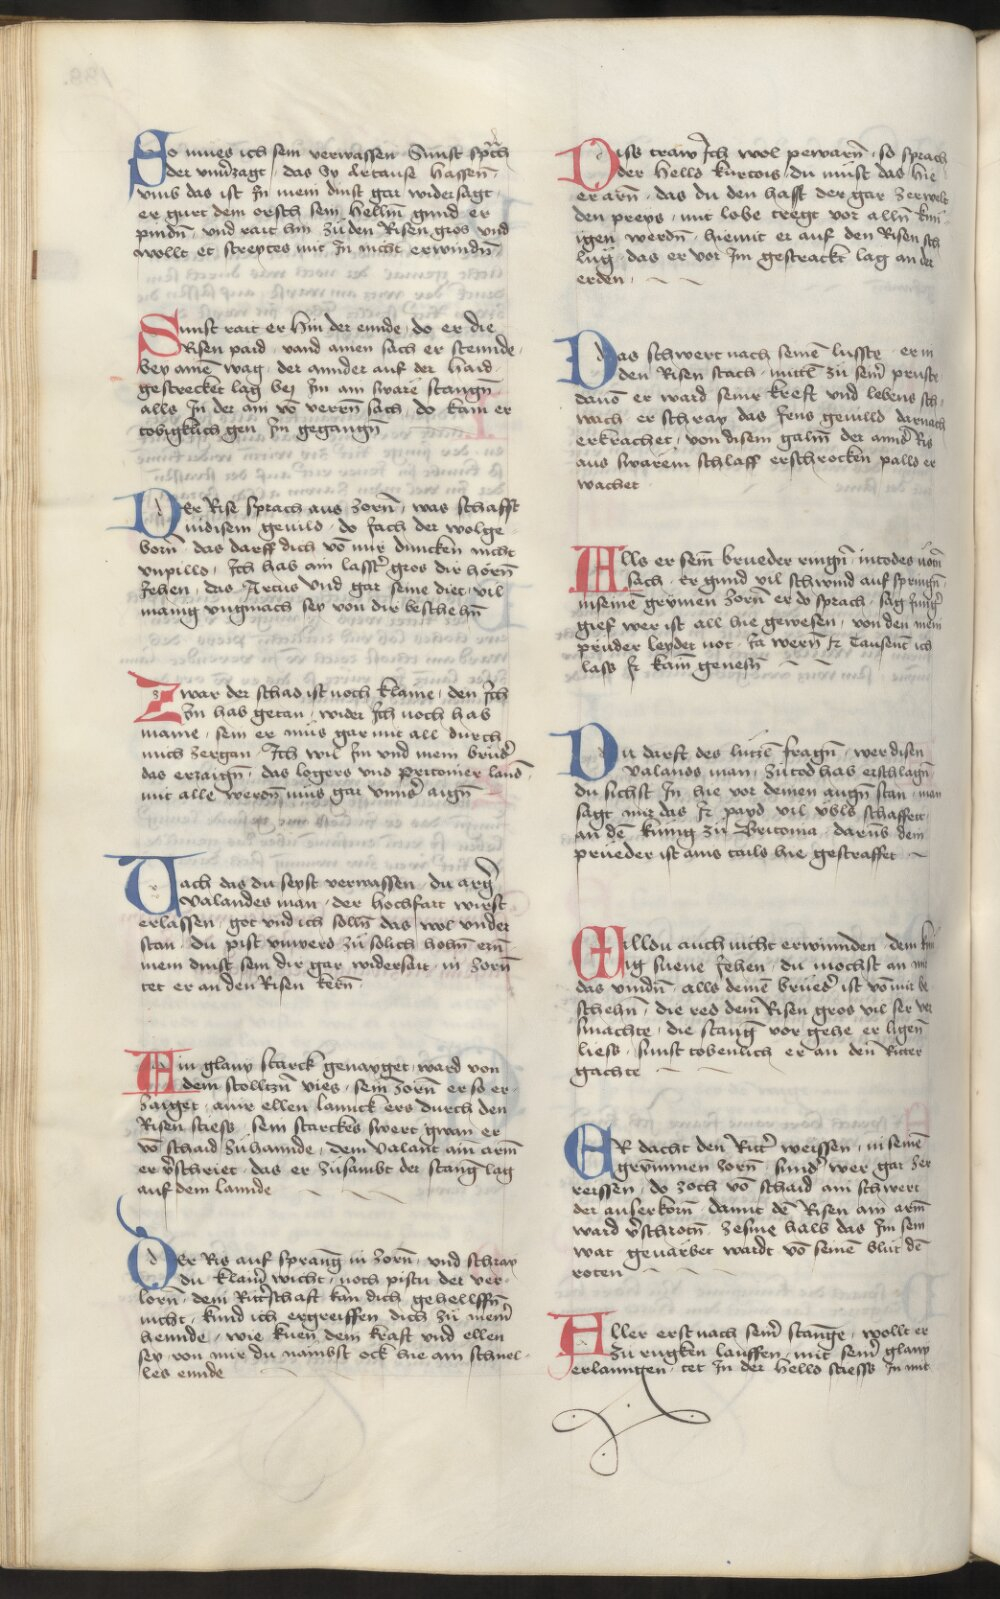 So mues ich sein verwassen Sunst sprach
der unverzagt · das Ir Artaufe hassen
vmb das ist In mein dinst gar widersagt ·
er gurt dem orsch sein hellm gund er
pindn̄ · vnd rait hin zu den Risen gros vnd
wollt et streytes mit In nicht erwindn̄
Sunst rait er hin der ennde · do er die
Risen paid · vand ainen sach er stennde ·
bey ainē wag · der annder auf der haid ·
gestrecket lag bey Im ain swäre stangn̄
alls In der ain vō verrn̄ sach · do kam er
tobigklich gen Im gegangn̄
Der Rise sprach aus zorn̄ · was schafst
in disem gevild · do Iach der wolge
born̄ · das darff dich vō mir duncken nicht
vnpilld · Ich hab ain lasster gros dir hörn̄
Iehen · das Artus vnd gar seine diet · vil
manig vngmach sey von dir beschehn̄
Zwar der schad ist noch klaine · den Ich
In hab getan · wider Ich noch hab
maine · sein er mus gar mit all durch
mich zergan · Ich wil Im vnd mein brüder
das erzaign̄ · das logers vnd Pritonier lannd
mit alle werdn̄ mus gar vnnser aign̄
Uach das du seyst verwassen · du arger
valandes man · der hochfart wirst
erlassen · got vnd ich solln̄ das wol vnder
stan · du pist vnwerd zu solich hohn̄ ern̄
mein dinst sein dir gar widersait · in zorn̄
tet er an den Risen kern̄
Ain glauy starck genayget · ward von
dem stolltzn̄ vies · sein zorn̄ er so er ·
zaiget · ainr ellen lannck ers durch den
Risen stiess · sein starckes swert gwan er
vō schaid zuhannde · dem valant ain arm̄
er verschriet · das er zusambt der stang lag
auf dem lannde
Der Ris auf sprang in zorn̄ · vnd schray
du klainer wicht · noch pistu der ver-
lorn̄ · dein Ritterschaft kan dich gehellffn̄
nicht · kund ich ergreiffen dich zu meinr
hennde · wie kuen dein kraft vnd ellen
sey · von mir du nambst ock hie ain schnel-
les ennde
Diss traw Ich wol pewarn̄ · so sprach
der helld kurtois · du must das hie
erarn̄ · das du den hast der gar zerwelt
den preys · mit lobe tregt vor alln̄ kün
igen werdn̄ · hiemit er auf den Risen sch
lug · das er vor Im gestrackt lag an der
erden ·
Das schwert nach seinē lusste · er in
den Risen stach · mittn̄ zu seinr pruste
dauō er ward seiner kreft vnd lebens sch
wach · er schray das Iens gevilld darnach
erkrachet · von disem galm̄ der annder Ris
aus swärem schlaff erschrocken palld er
wachet
Alls er sein̄ brueder ringn̄ · in todes nōt
sach · Er gund vil schwind auf springn̄
in seinē grymen zorn̄ er do sprach · sag Junger
gief wer ist all hie gewesen · von den mein
prüder leydet not · Ia wern̄ Ir tausent ich
lass Ir kain̄ genesn̄
Du darft des lützl̄ fragn̄ · wer disen
valands man · zu tod hab erschlagn̄
du sichst In hie vor deinen augn̄ stan · man
sagt mir das Ir payd vil vbls schaffet
an dē künig zu Britonia · darūb dein
prüeder ist ains tails hie gestraffet
Willdu auch nicht erwinnden · dem kün
ig suene Iehen · du mochst an mir
das vindn̄ · alls deinē brüeder ist vō mir be
schehn̄ · die red den̄ Risen gros vil ser ver
smachte · die stanḡ vor gehe er ligen̄
liess · sunst tobenlich er an den̄ Ritter
gachte
Er dacht den̄ Ritter weissen · in seinē
grymmen zorn̄ · sunder wer gar zer
reissen · do zoch vō schaid ain schwert
der auserkorn̄ · damit dē Risen ain arm̄
ward verschrotn̄ · zesme halb das Im sein
wat geuärbet wardt vō seinē blut dē
roten
Aller erst nach seinr stange · wollt er
zu rugken lauffen · mit seinr glauy
erlanngen · tet In der helld stiess In mit